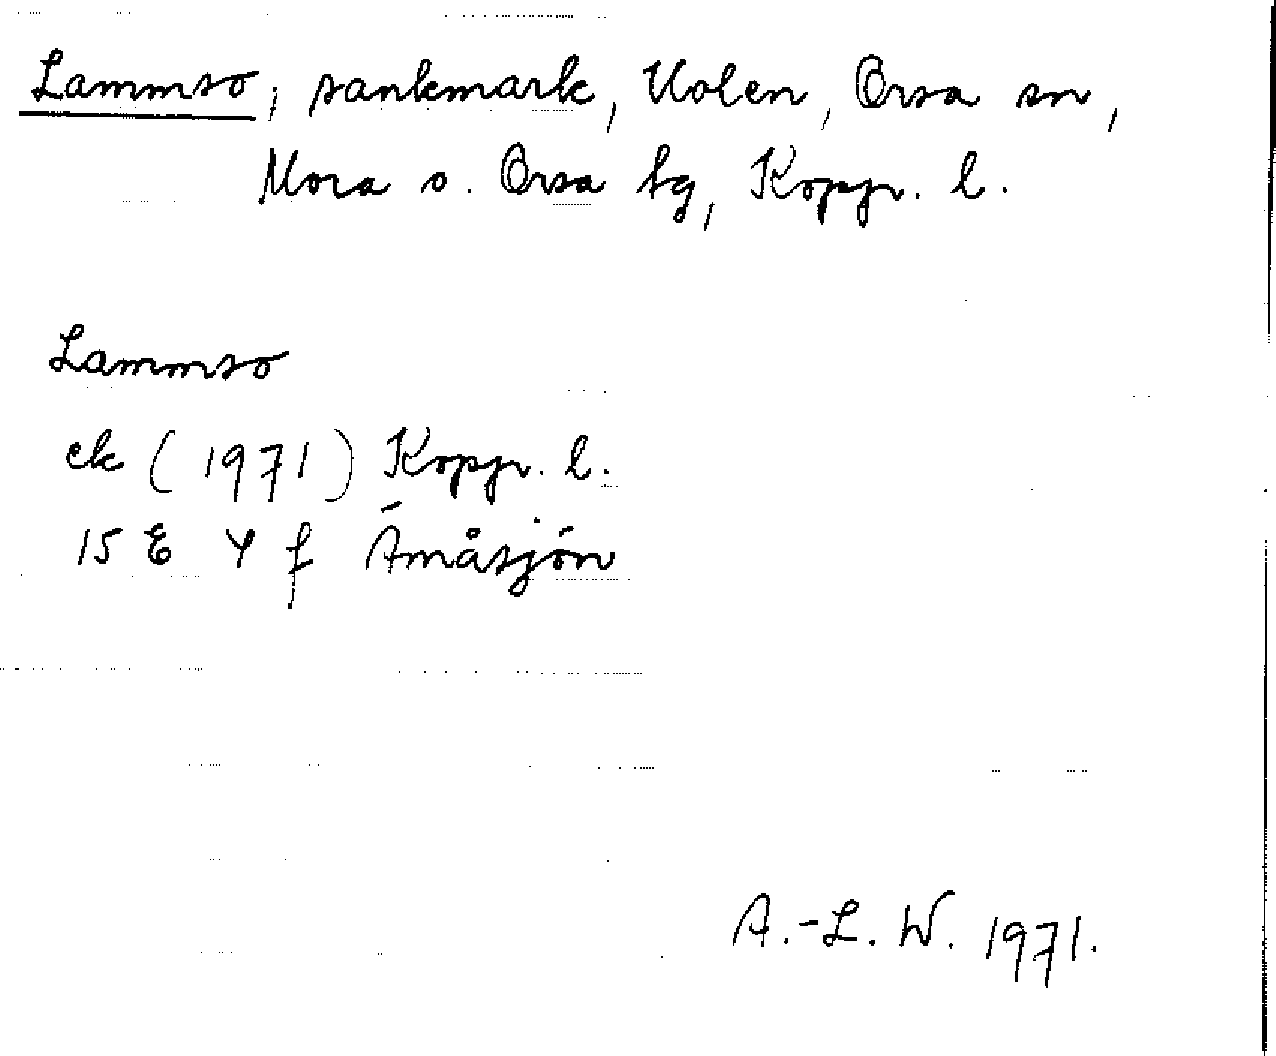 Lammso, sankmark, Uolen, Orsa sn,
Mora o. Orsa tg, Koppr. l.
Lammso
ek (1971) Koppr. l.
15 E 4 f Ämåsjön
A.-L. W. 1971.